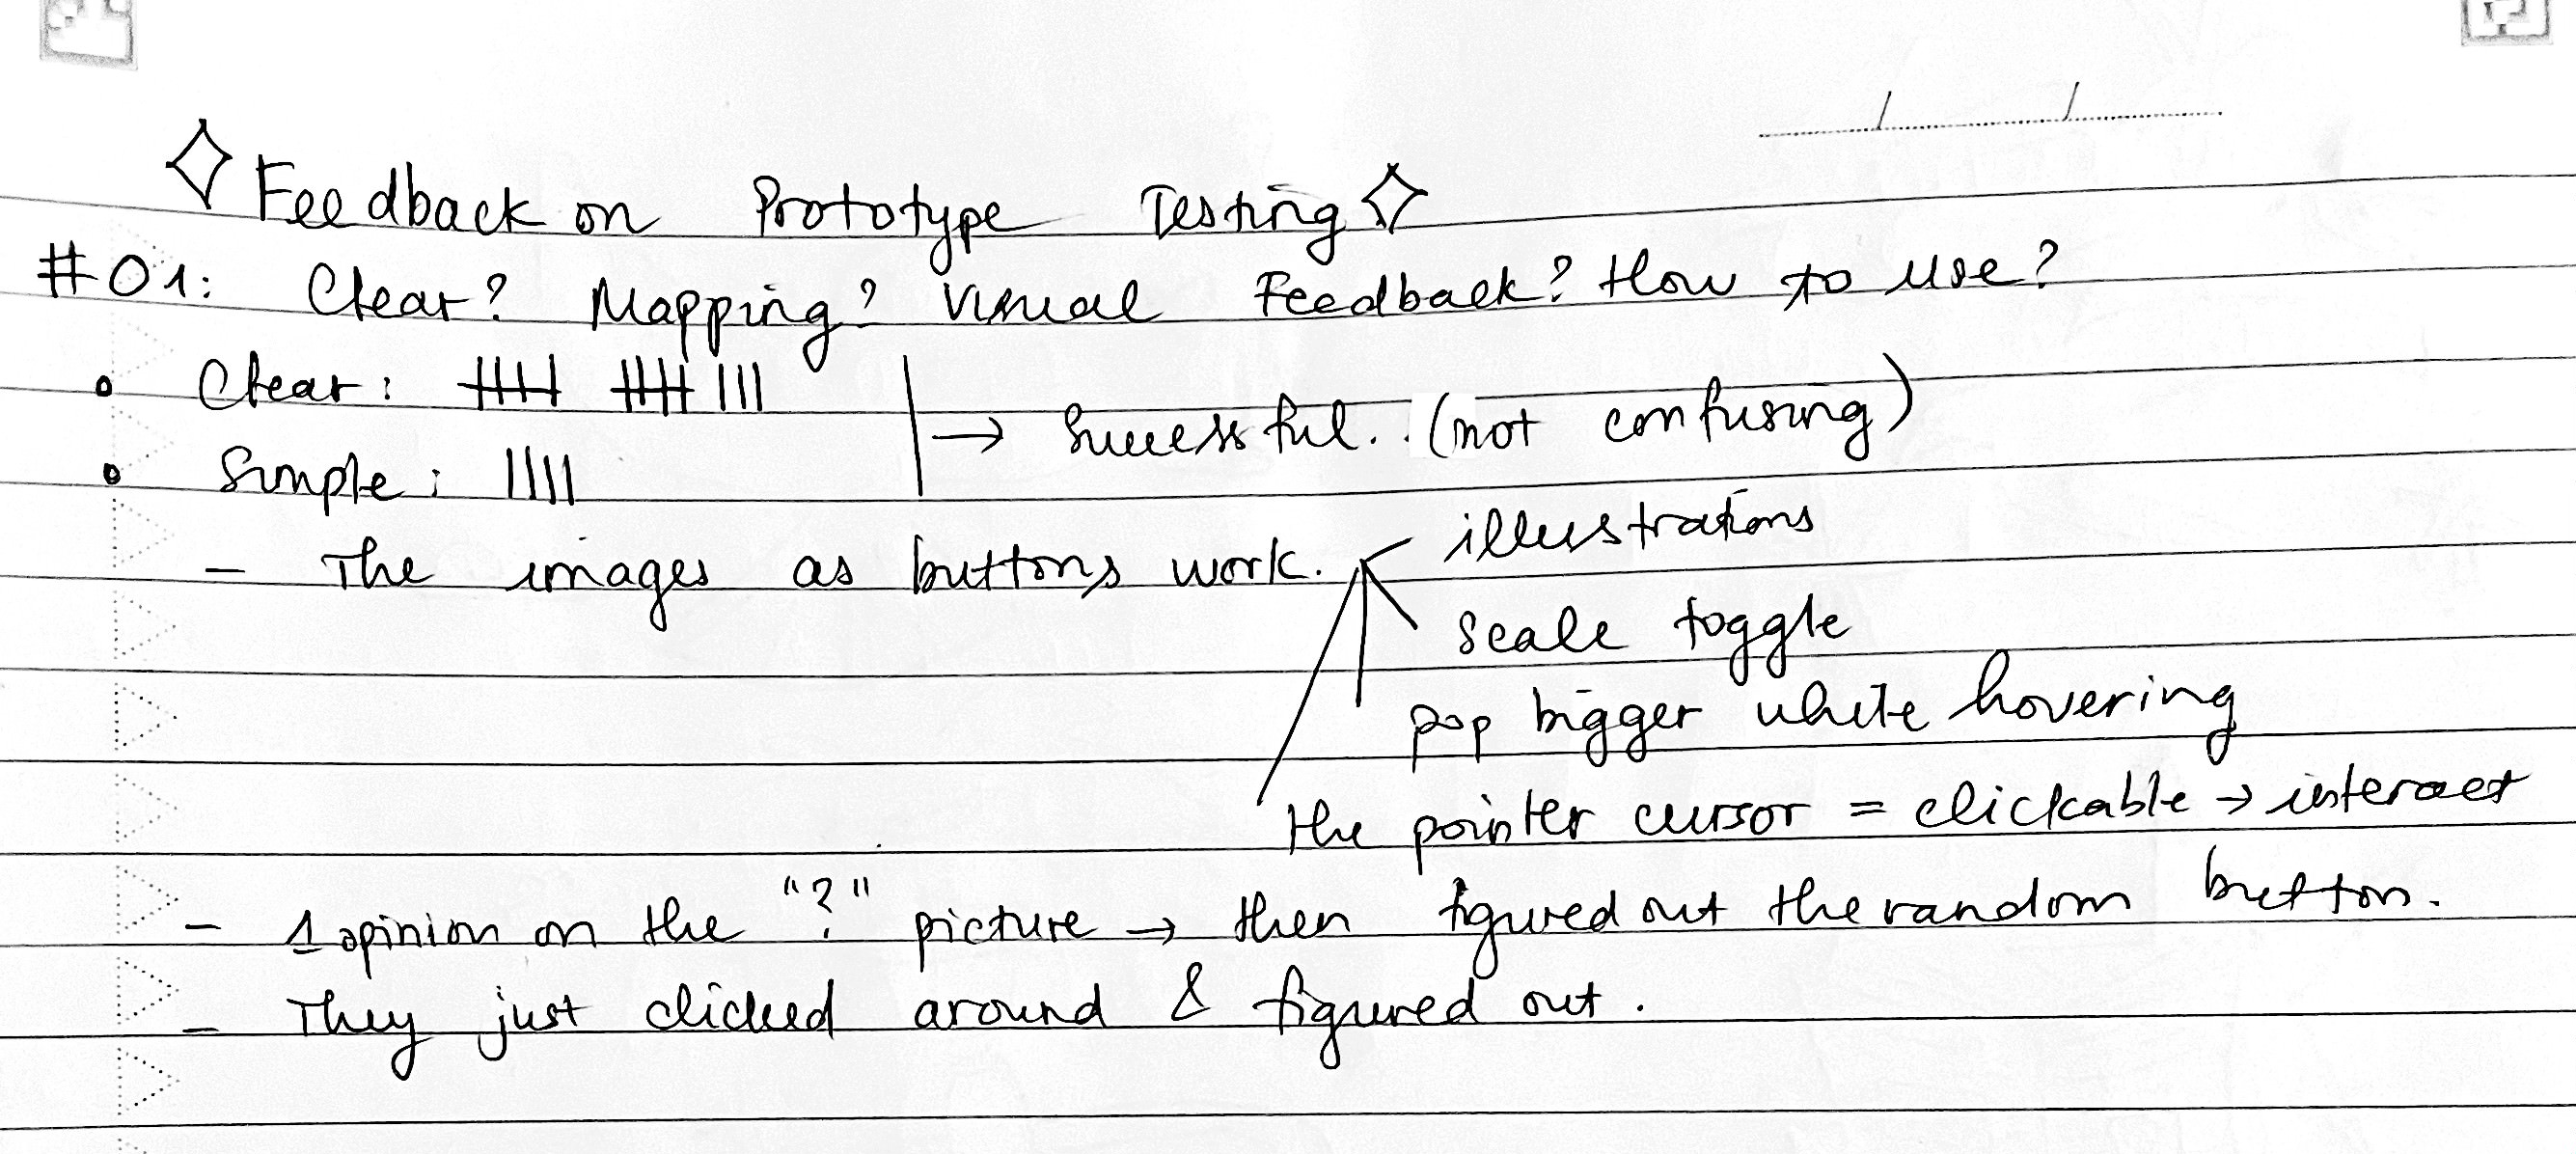 Feedback on Prototype Testing
#01: Clear? Mapping? Visual Feedback? How to use?
Clear: 卌 卌 |||
→ Successful. (not confusing)
Simple: ||||
- The images as buttons work.
illustrations
scale toggle
pop bigger while hovering
the pointer cursor = clickable → interact
- 1 opinion on the "?" picture → then figured out the random button.
- They just clicked around & figured out.